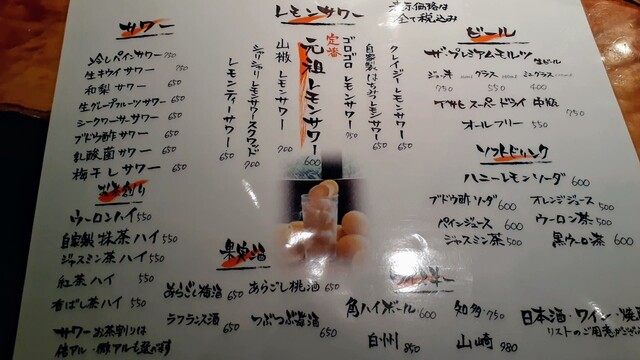 サワー
冷しパインサワー 750
生キウイサワー 750
和梨サワー 650
生グレープフルーツサワー 650
シークワーサーサワー 650
ブドウ酢サワー 650
乳酸菌サワー 650
梅干しサワー 650
お茶割り
ウーロンハイ 550
自家製 抹茶ハイ 550
ジャスミン茶ハイ 550
紅茶ハイ 550
香ばし茶ハイ 550
サワー お茶割りは
倍アル・酢アルも選べます
レモンサワー
表示価格は
全て税込み
クレイジーレモンサワー 650
自家製はちみつレモンサワー 650
ゴロゴロレモンサワー 750
定番
元祖レモンサワー 600
山椒レモンサワー 700
シャリシャリレモンサワースクワッド 700
レモンティーサワー 650
果実酒
あらごし梅酒 650
あらごし桃酒 650
ラフランス酒 650
つぶつぶ苺酒 650
ビール
ザ・プレミアムモルツ 生ビール
ジョッキ 750
グラス 550
ミニグラス 400
アサヒ スーパードライ 中瓶 750
オールフリー 550
ソフトドリンク
ハニーレモンソーダ 600
ブドウ酢ソーダ 600
オレンジジュース 500
パインジュース 600
ウーロン茶 500
ジャスミン茶 500
黒ウーロン茶 600
ウイスキー
角ハイボール 600
知多 750
白州 850
山崎 980
日本酒・ワイン・焼
リストのご用意が